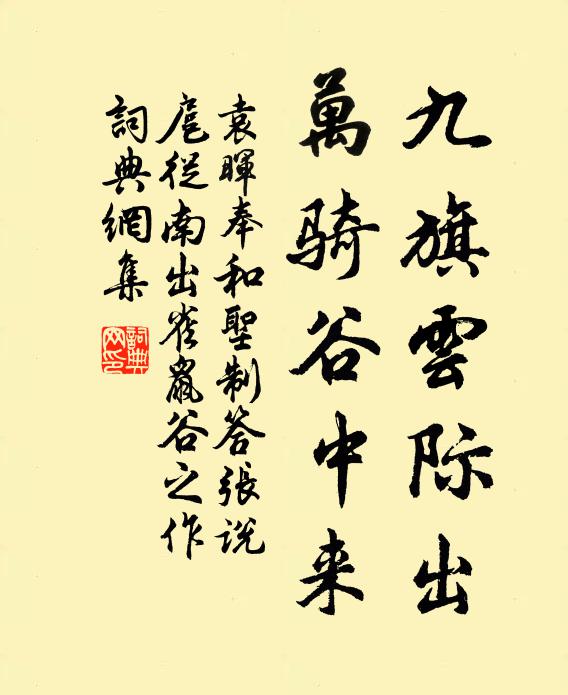 九旗雲际出
萬騎谷中来
袁暉奉和聖制答張说
扈從南出雀鼠谷之作
词典網集
詞典网印